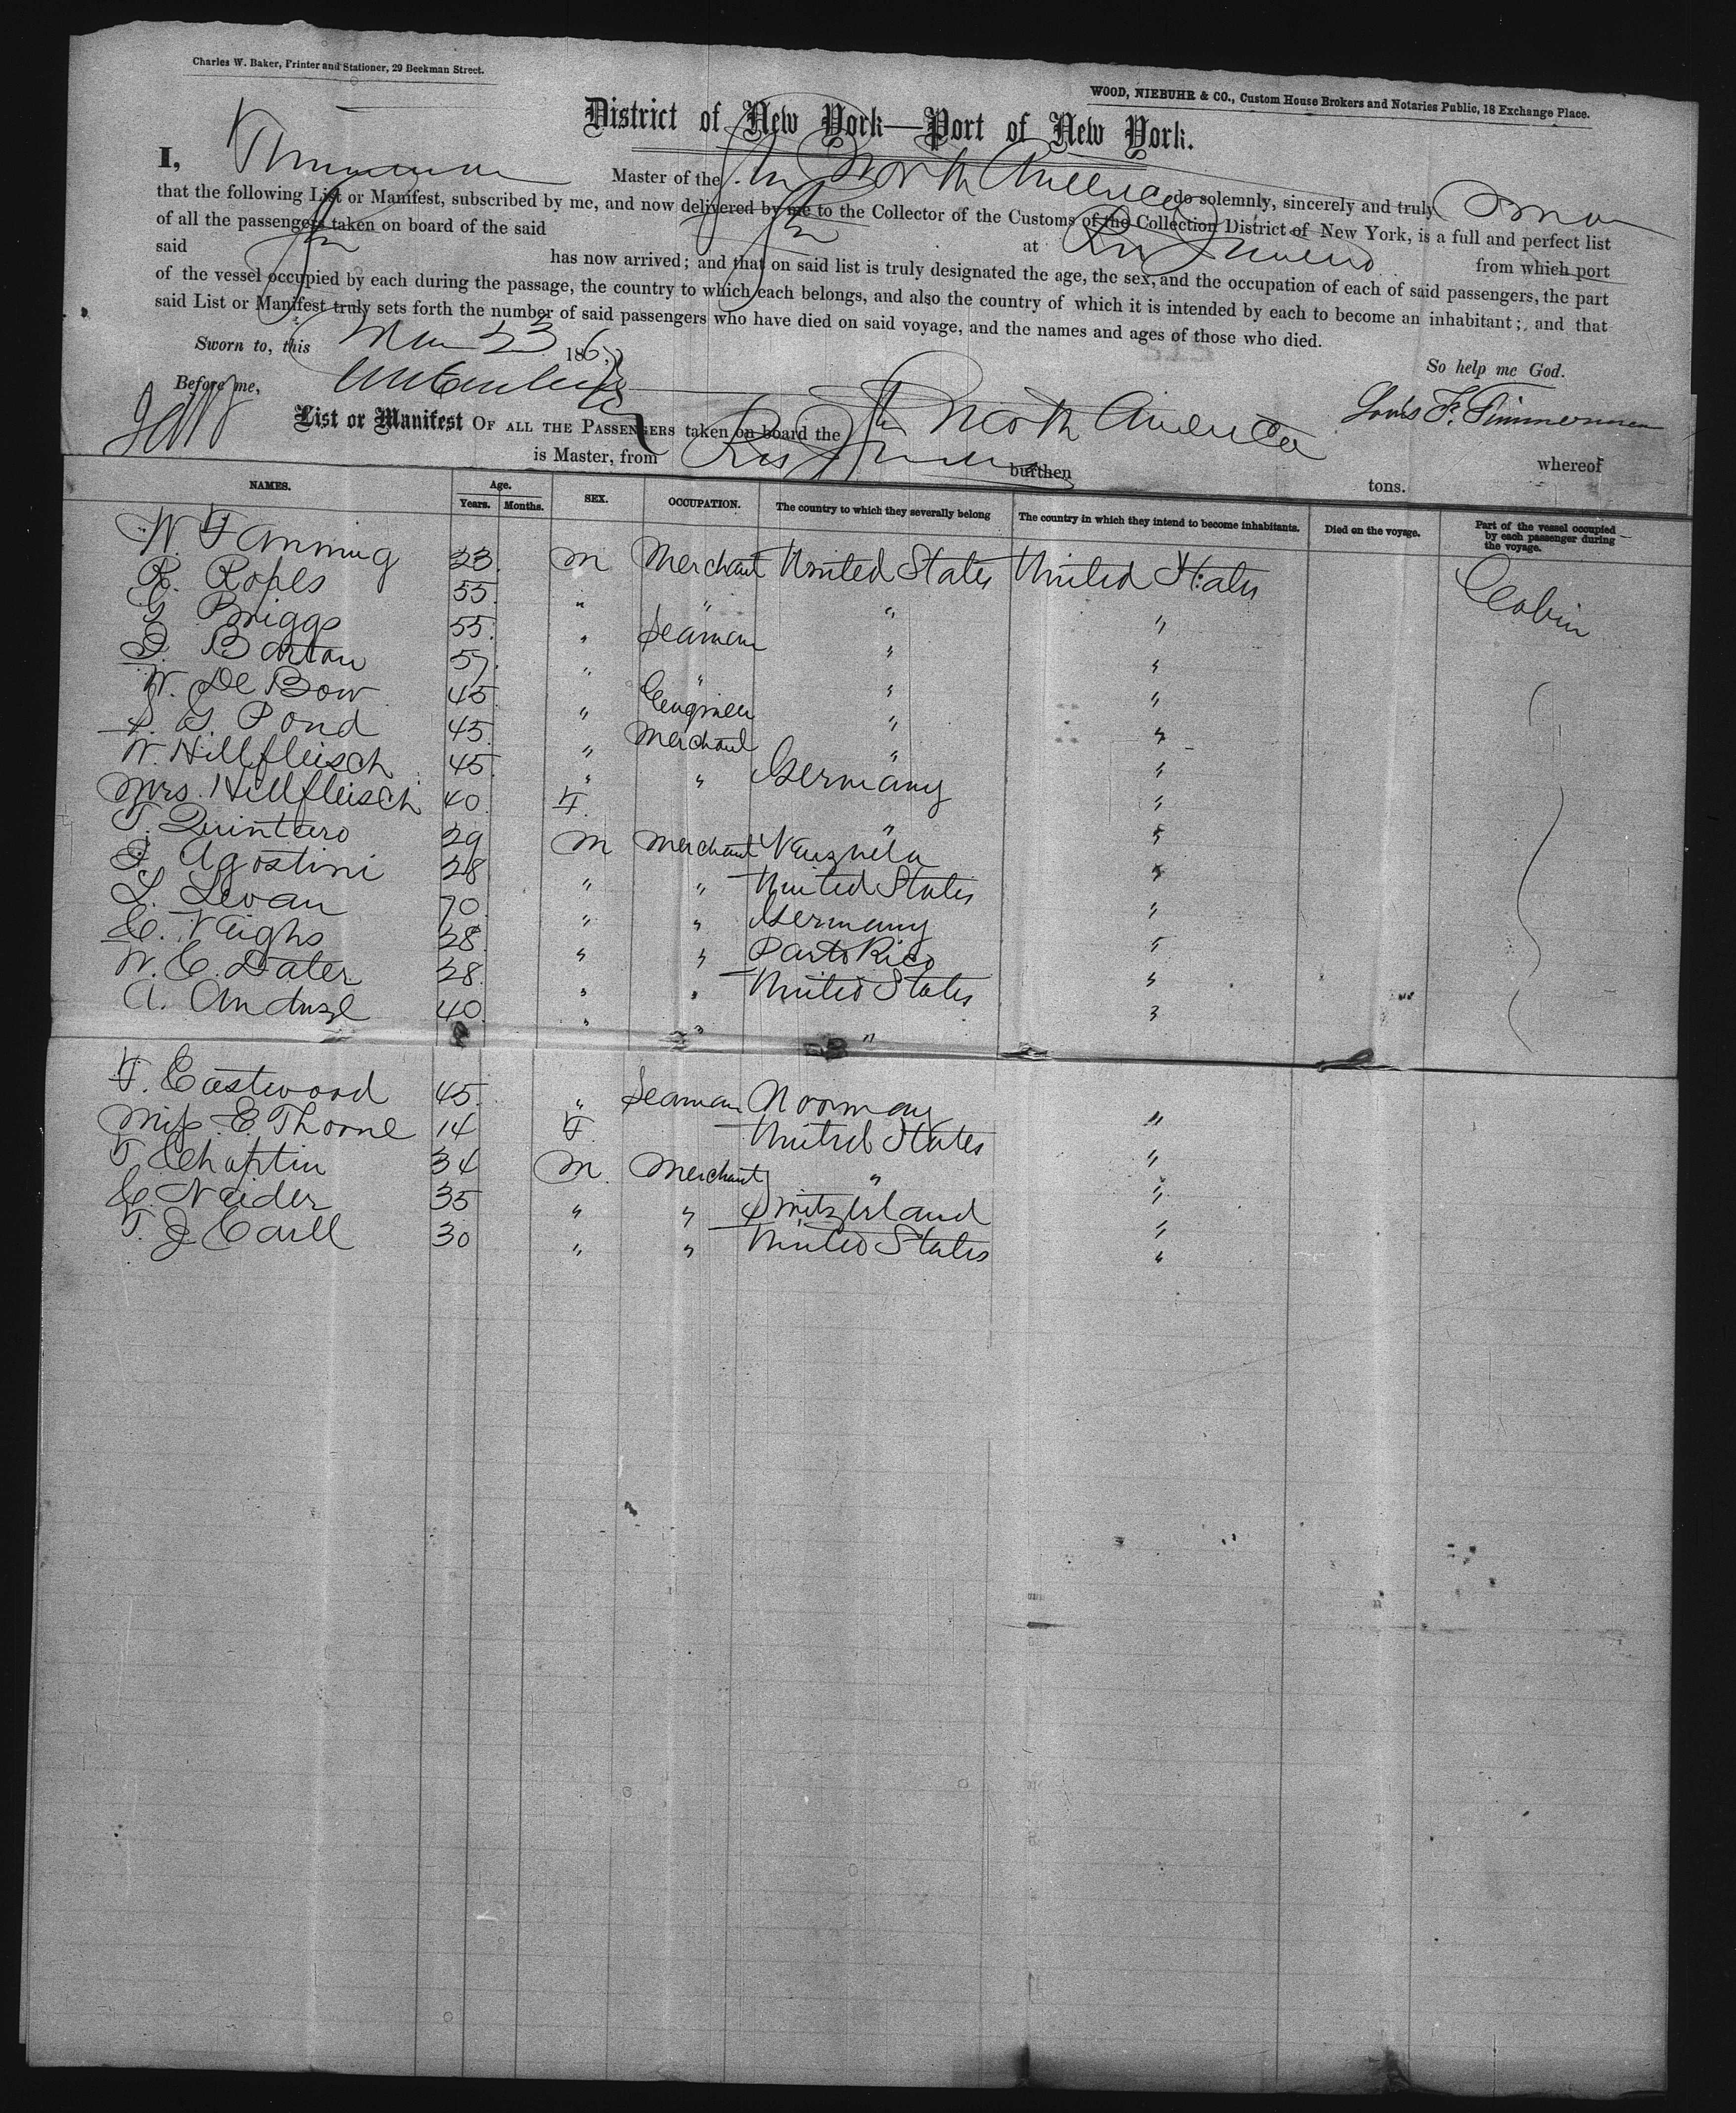 Charles W. Baker, Printer and Stationer, 29 Beekman Street.
WOOD, NIEBUHR & CO., Custom House Brokers and Notaries Public, 18 Exchange Place.
District of New York—Port of New York.
I, Timmerman Master of the Str North America do solemnly, sincerely and truly Swear
that the following List or Manifest, subscribed by me, and now delivered by me to the Collector of the Customs of the Collection District of New York, is a full and perfect list
of all the passengers taken on board of the said Str at Rio Janeiro from which port
said Str has now arrived; and that on said list is truly designated the age, the sex, and the occupation of each of said passengers, the part
of the vessel occupied by each during the passage, the country to which each belongs, and also the country of which it is intended by each to become an inhabitant; and that
said List or Manifest truly sets forth the number of said passengers who have died on said voyage, and the names and ages of those who died.
Sworn to, this 23 186
So help me God.
Before me,
Louis F. Timmerman
List or Manifest OF ALL THE PASSENGERS taken on board the Str North America whereof
is Master, from Rio Janeiro burthen tons.
NAMES. Age. Years. Months. SEX. OCCUPATION. The country to which they severally belong The country in which they intend to become inhabitants. Died on the voyage. Part of the vessel occupied by each passenger during the voyage.
W. Fanning 23 M Merchant United States United States Cabin
R. Ropes 55 " " " "
G Briggs 55 " Seaman " "
Barton 57 " " " "
W. De Bow 45 " Engineer " "
S. G Pond 45 " Merchant " "
W. Hillfleisch 45 " " Germany "
Mrs. Hillfleisch 40 F. " "
T. Quintero 29 M Merchant Venzuela "
Agostini 28 " " United States "
L. Levan 70 " " Germany "
C. Veighs 28 " " Porto Rico "
W. C. Dater 28 " " United States "
A. Anduze 40 " " " "
F. Eastwood 45 " Seaman Normay "
Miss E. Thorne 14 F. United States "
T. Chaptin 34 M. Merchant " "
C. Neider 35 " " Switzerland "
T. J Carll 30 " " United States "